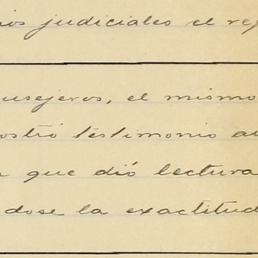 ios judiciales el reg
nsejeros, el mismo
ostró testimonio au
que dió lectura
dose la exactitud